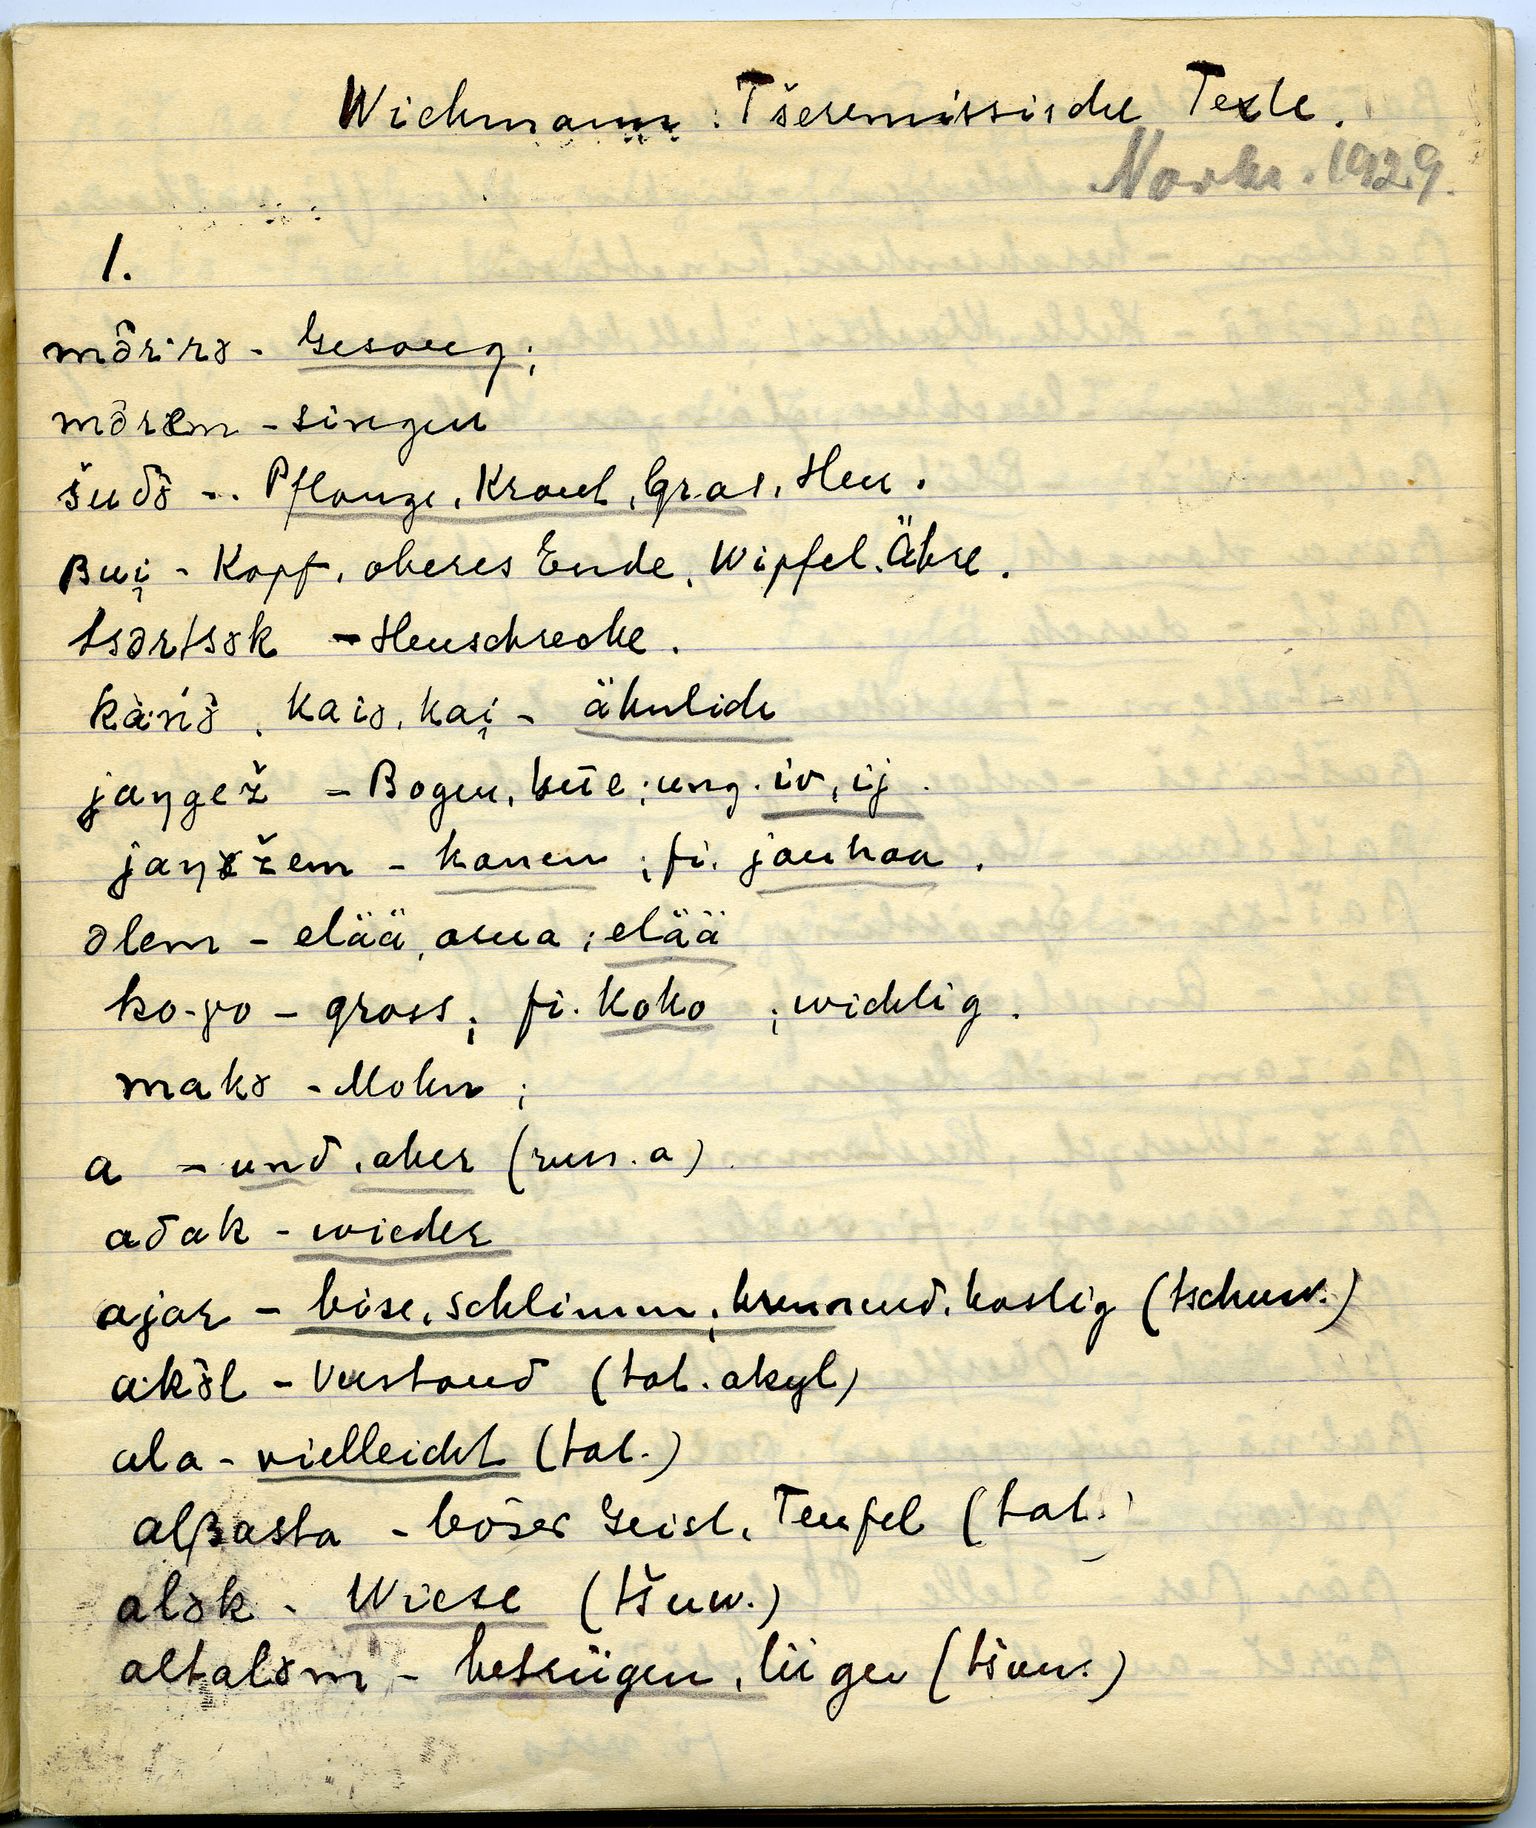 Wichmann: Tšeremissische Texte.
1929.
1.
mə̑rə̑ - Gesang;
mə̑rem - singen
šuδə̑ - Pflanze, Kraut, Gras, Heu.
ʙui̯ - Kopf, oberes Ende, Wipfel, Ähre.
tsə̑rtsə̑k - Heuschrecke.
kań̀ə̑, kaiə̑, kai̯ - ähnlich
jaŋgež - Bogen, ung. iv, ij.
jaŋəžem - fi. jauhaa.
ə̑lem - elää, asua; elää
ko·γo - gross; fi. koko; wichtig.
makə̑ - Mohn;
a - und, aber (russ. a)
aδak - wieder
ajar - böse, schlimm; brennend, hastig (tschuw.)
akə̑l - Verstand (tat. akyl)
ala - vielleicht (tat.)
alβasta - böser Geist, Teufel (tat.)
alə̑k - Wiese (tšuw.)
altalə̑m - betrügen, lügen (tšuw.)